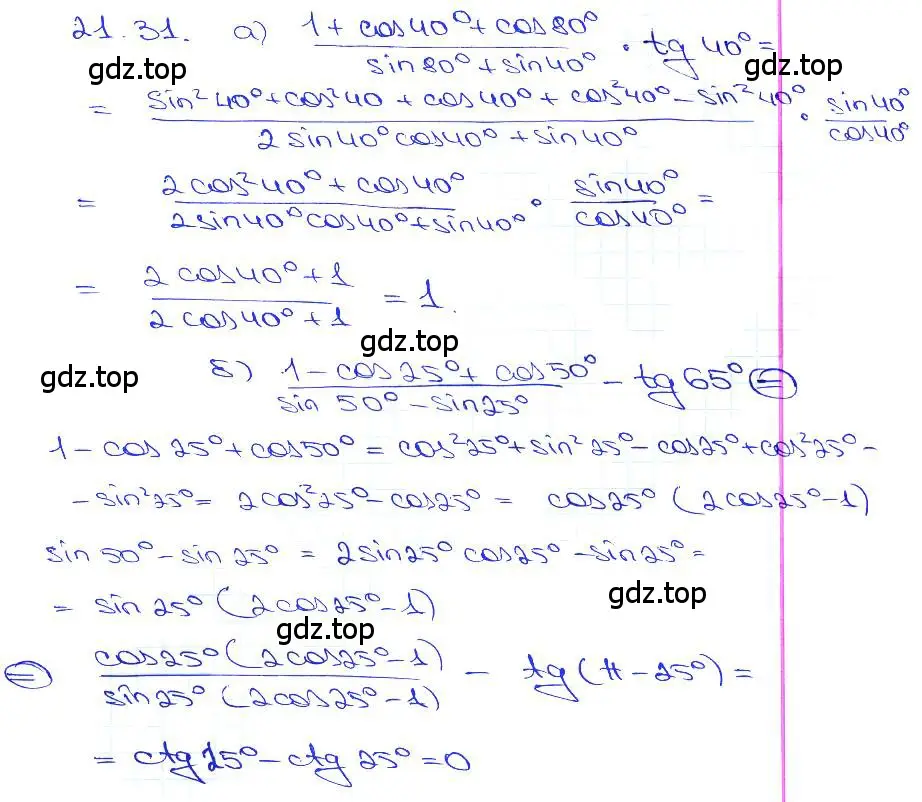 21.31. а) (1 + cos40° + cos80°)/(sin80° + sin40°) · tg 40° =
gdz.top gdz.top
= (sin²40° + cos²40 + cos40° + cos²40° − sin²40°)/(2sin40°cos40° + sin40°) · sin40°/cos40°
= (2cos²40° + cos40°)/(2sin40°cos40° + sin40°) · sin40°/cos40° =
= (2cos40° + 1)/(2cos40° + 1) = 1.
gdz.top
gdz.top
б) (1 − cos25° + cos50°)/(sin 50° − sin25°) − tg 65° =
1 − cos25° + cos50° = cos²25° + sin²25° − cos25° + cos²25° −
− sin²25° = 2cos²25° − cos25° = cos25° (2cos25° − 1)
sin50° − sin25° = 2sin25° cos25° − sin25° =
= sin25° (2cos25° − 1)
gdz.top
gdz.top
= cos25° (2cos25° − 1)/(sin25° (2cos25° − 1)) − tg(π − 25°) =
= ctg25° − ctg25° = 0